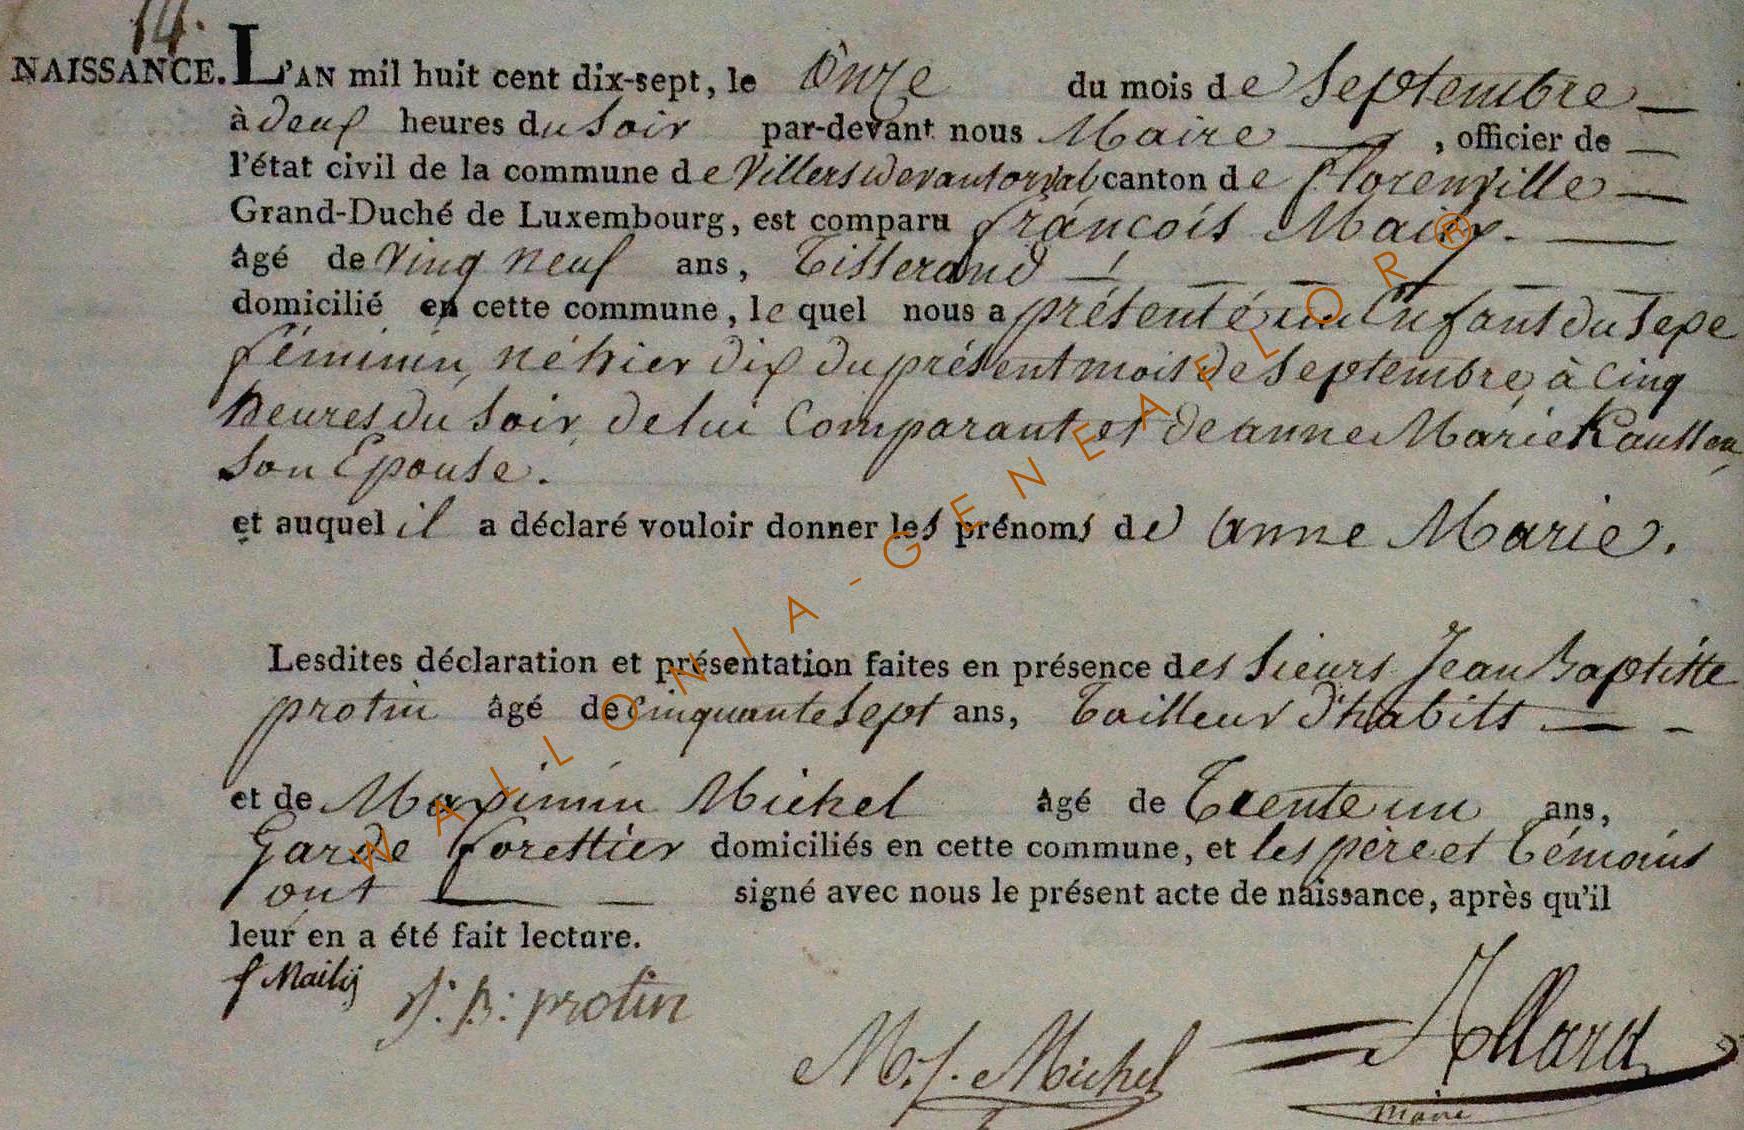 14.
NAISSANCE. L'AN mil huit cent dix-sept, le Onze du mois de Septembre
à deux heures du Soir par-devant nous Maire, officier de
l'état civil de la commune de Villers devant orval canton de florenville
Grand-Duché de Luxembourg, est comparu françois
âgé de Vingt neuf ans, Tisserand
domicilié en cette commune, le quel nous a présenté un Enfant du Sexe
féminin, né hier dix du présent mois de Septembre, à Cinq
heures du Soir, de lui Comparant et de anne Marie
Son Epouse.
et auquel il a déclaré vouloir donner les prénoms de anne Marie.
Lesdites déclaration et présentation faites en présence des Sieurs Jean Baptiste
protin âgé de Cinquante Sept ans, Tailleur d'habits
et de Maximin Michel âgé de Trente un ans,
Garde forestier domiciliés en cette commune, et les père et Témoins
ont signé avec nous le présent acte de naissance, après qu'il
leur en a été fait lecture.
J: B: protin
M. J. Michel
Allard
Maire
WALLONIA-GENEAFLOR®